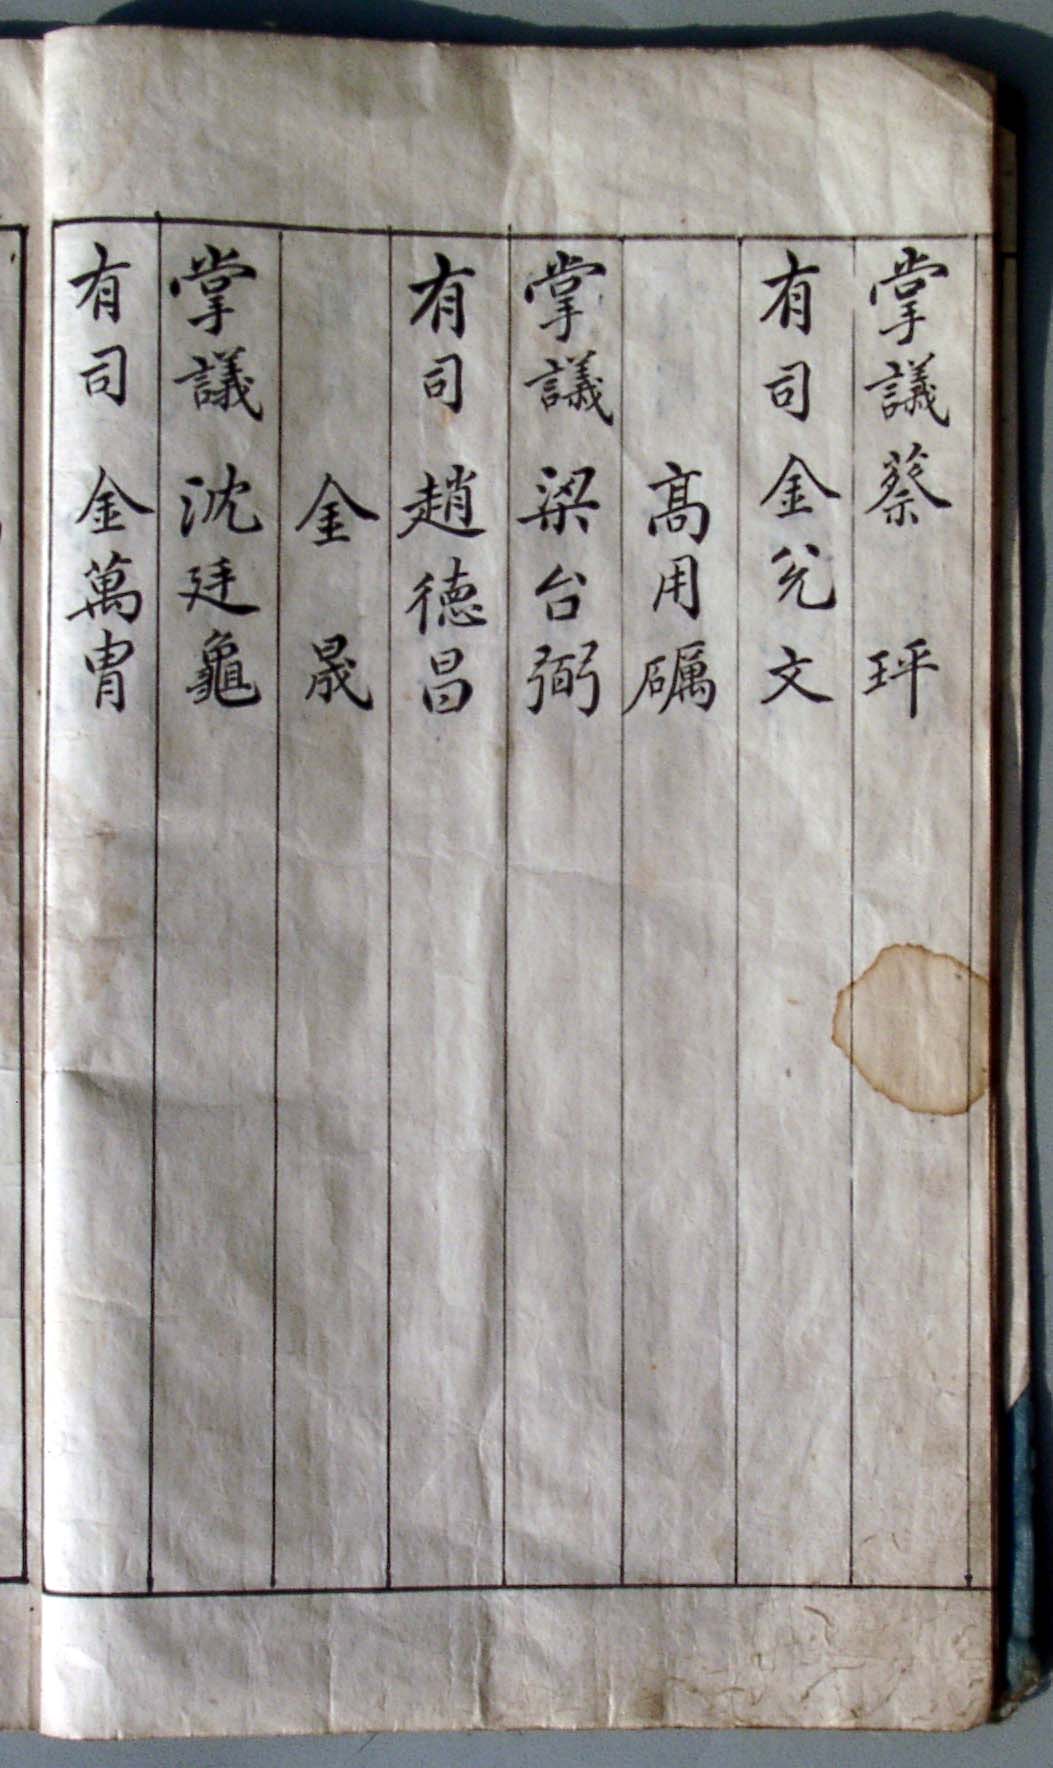 掌議 蔡 玶
有司 金兌文
高用礪
掌議 梁台弼
有司 趙德昌
金 晟
掌議 沈廷龜
有司 金萬胄